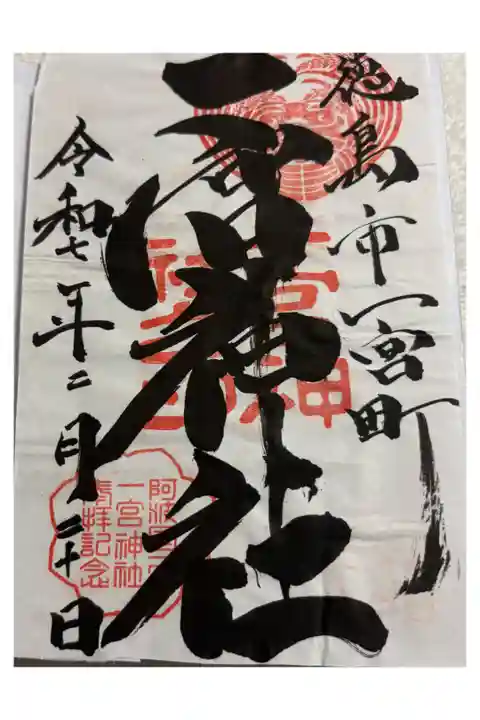 徳島市一宮町
一宮神社
令和七年二月二十日
一宮神社
参拝記念